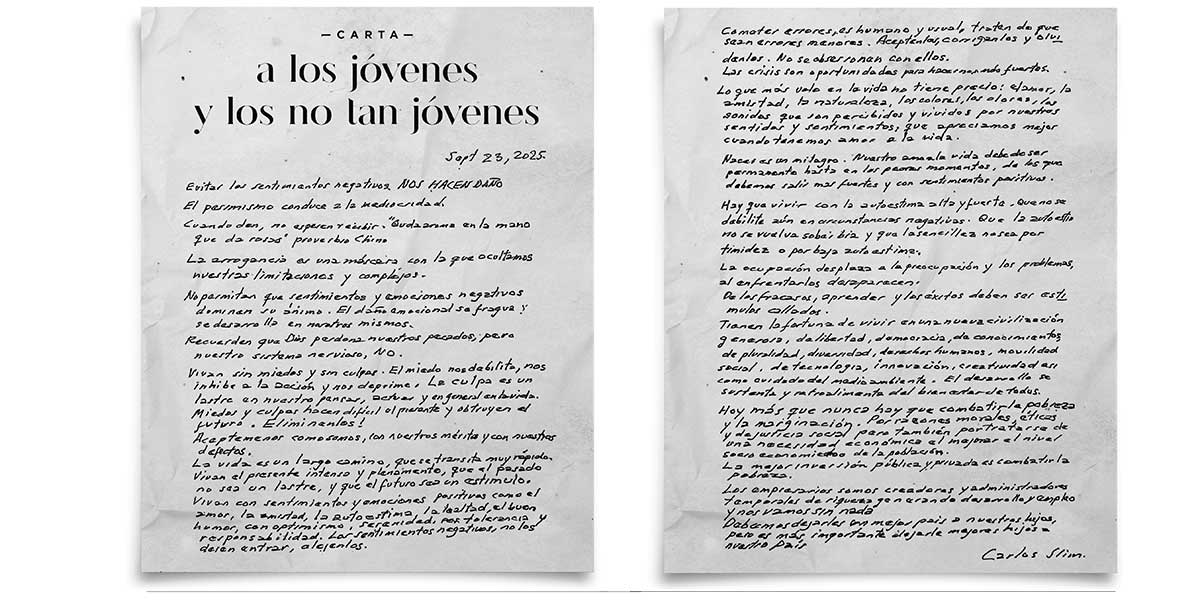 —CARTA—
a los jóvenes
y los no tan jóvenes
Sept 23, 2025.
Evitar los sentimientos negativos, NOS HACEN DAÑO
El pesimismo conduce a la mediocridad.
Cuando den, no esperen recibir. "Queda aroma en la mano
que da rosas" proverbio Chino
La arrogancia es una máscara con la que ocultamos
nuestras limitaciones y complejos.
No permitan que sentimientos y emociones negativos
dominen su ánimo. El daño emocional se fragua y
se desarrolla en nosotros mismos.
Recuerden que Dios perdona nuestros pecados, pero
nuestro sistema nervioso, NO.
Vivan sin miedos y sin culpas. El miedo nos debilita, nos
inhibe a la acción y nos deprime. La culpa es un
lastre en nuestro pensar, actuar y en general en la vida.
Miedos y culpas hacen difícil el presente y obstruyen el
futuro. Elimínenlos!
Aceptemonos como somos, con nuestros méritos y con nuestros
defectos.
La vida es un largo camino, que se transita muy rápido.
Vivan el presente intenso y plenamente, que el pasado
no sea un lastre, y que el futuro sea un estímulo.
Vivan con sentimientos y emociones positivas como el
amor, la amistad, la autoestima, la lealtad, el buen
humor, con optimismo, serenidad, tolerancia y
responsabilidad. Los sentimientos negativos, no los
dejen entrar, alejenlos.
Cometer errores, es humano y usual, traten de que
sean errores menores. Aceptenlos, corríganlos y olvi
denlos. No se obsesionan con ellos.
Las crisis son oportunidades para hacernos más fuertes.
Lo que más vale en la vida no tiene precio: el amor, la
amistad, la naturaleza, los colores, los olores, los
sonidos que son percibidos y vividos por nuestros
sentidos y sentimientos, que apreciamos mejor
cuando tenemos amor a la vida.
Nacer es un milagro. Nuestro amor a la vida debe de ser
permanente hasta en los peores momentos, de los que
debemos salir mas fuertes y con sentimientos positivos.
Hay que vivir con la autoestima alta y fuerte. Que no se
debilite aún en circunstancias negativas. Que la autoestima
no se vuelva soberbia y que la sencillez no sea por
timidez o por baja autoestima.
La ocupación desplaza a la preocupación y los problemas,
al enfrentarlos desaparecen.
De los fracasos, aprender y los éxitos deben ser estí
mulos callados.
Tienen la fortuna de vivir en una nueva civilización
generosa, de libertad, democracia, de conocimientos,
de pluralidad, diversidad, derechos humanos, movilidad
social, de tecnología, innovación, creatividad así
como cuidado del medio ambiente. El desarrollo se
sustenta y retroalimenta del bienestar de todos.
Hoy más que nunca hay que combatir la pobreza
y la marginación. Por razones morales, éticas
y de justicia social, pero también por tratarse de
una necesidad económica el mejorar el nivel
socio economico de la población.
La mejor inversión pública y privada es combatir la
pobreza.
Los empresarios somos creadores y administradores
temporales de riqueza generando desarrollo y empleo
y nos vamos sin nada
Debemos dejarles un mejor país a nuestros hijos,
pero es más importante dejarle mejores hijos a
nuestro País
Carlos Slim.